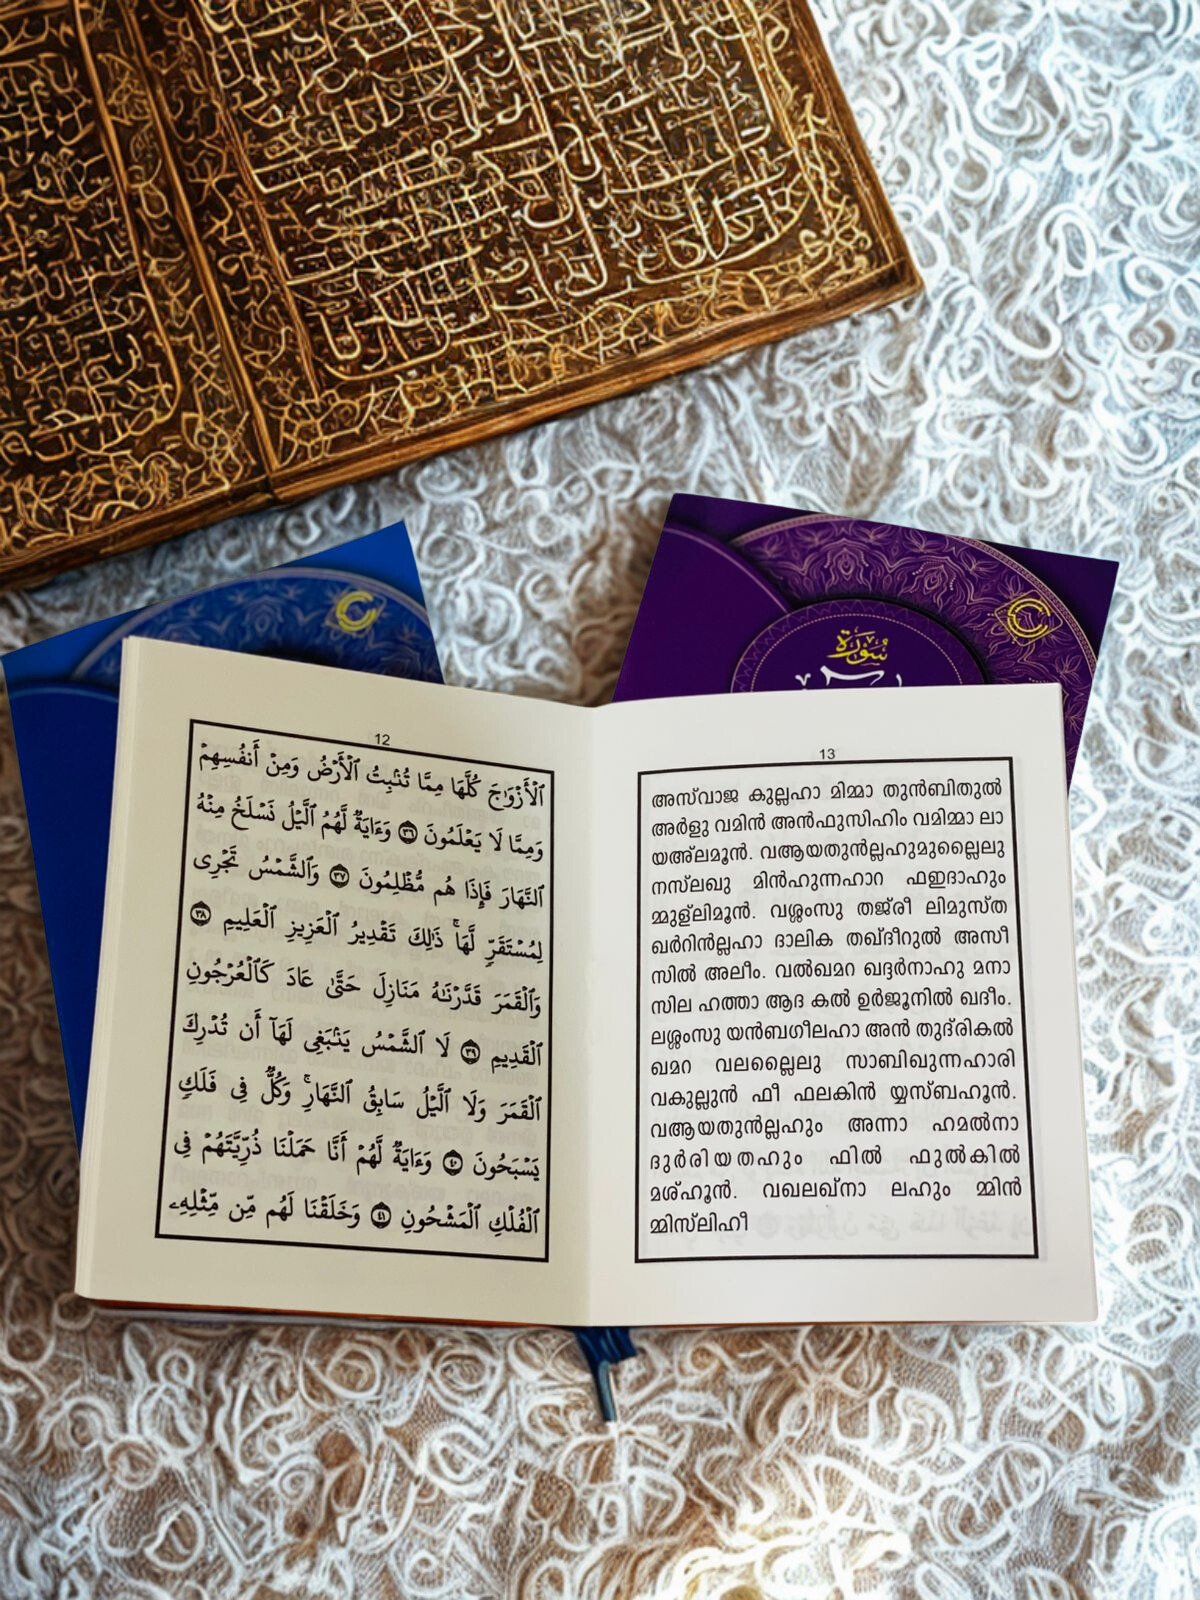 سُورَة
12
ٱلْأَزْوَٰجَ كُلَّهَا مِمَّا تُنۢبِتُ ٱلْأَرْضُ وَمِنْ أَنفُسِهِمْ
وَمِمَّا لَا يَعْلَمُونَ ٣٦ وَءَايَةٌ لَّهُمُ ٱلَّيْلُ نَسْلَخُ مِنْهُ
ٱلنَّهَارَ فَإِذَا هُم مُّظْلِمُونَ ٣٧ وَٱلشَّمْسُ تَجْرِى
لِمُسْتَقَرٍّ لَّهَا ۚ ذَٰلِكَ تَقْدِيرُ ٱلْعَزِيزِ ٱلْعَلِيمِ ٣٨
وَٱلْقَمَرَ قَدَّرْنَٰهُ مَنَازِلَ حَتَّىٰ عَادَ كَٱلْعُرْجُونِ
ٱلْقَدِيمِ ٣٩ لَا ٱلشَّمْسُ يَنۢبَغِى لَهَآ أَن تُدْرِكَ
ٱلْقَمَرَ وَلَا ٱلَّيْلُ سَابِقُ ٱلنَّهَارِ ۚ وَكُلٌّ فِى فَلَكٍ
يَسْبَحُونَ ٤٠ وَءَايَةٌ لَّهُمْ أَنَّا حَمَلْنَا ذُرِّيَّتَهُمْ فِى
ٱلْفُلْكِ ٱلْمَشْحُونِ ٤١ وَخَلَقْنَا لَهُم مِّن مِّثْلِهِۦ
13
അസ്‌വാജ കുല്ലഹാ മിമ്മാ തുൻബിതുൽ
അർളു വമിൻ അൻഫുസിഹിം വമിമ്മാ ലാ
യഅ്‌ലമൂൻ. വആയതുൻല്ലഹുമുല്ലൈലു
നസ്‌ലഖു മിൻഹുന്നഹാറ ഫഇദാഹും
മ്മുള്‌ലിമൂൻ. വശ്ശംസു തജ്‌രീ ലിമുസ്ത
ഖർറിൻല്ലഹാ ദാലിക തഖ്ദീറുൽ അസീ
സിൽ അലീം. വൽഖമറ ഖദ്ദർനാഹു മനാ
സില ഹത്താ ആദ കൽ ഉർജൂനിൽ ഖദീം.
ലശ്ശംസു യൻബഗീലഹാ അൻ തുദ്‌രികൽ
ഖമറ വലല്ലൈലു സാബിഖുന്നഹാരി
വകുല്ലുൻ ഫീ ഫലകിൻ യ്യസ്ബഹൂൻ.
വആയതുൻല്ലഹും അന്നാ ഹമൽനാ
ദുർരിയതഹും ഫിൽ ഫുൽകിൽ
മശ്ഹൂൻ. വഖലഖ്നാ ലഹും മ്മിൻ
മ്മിസ്‌ലിഹീ